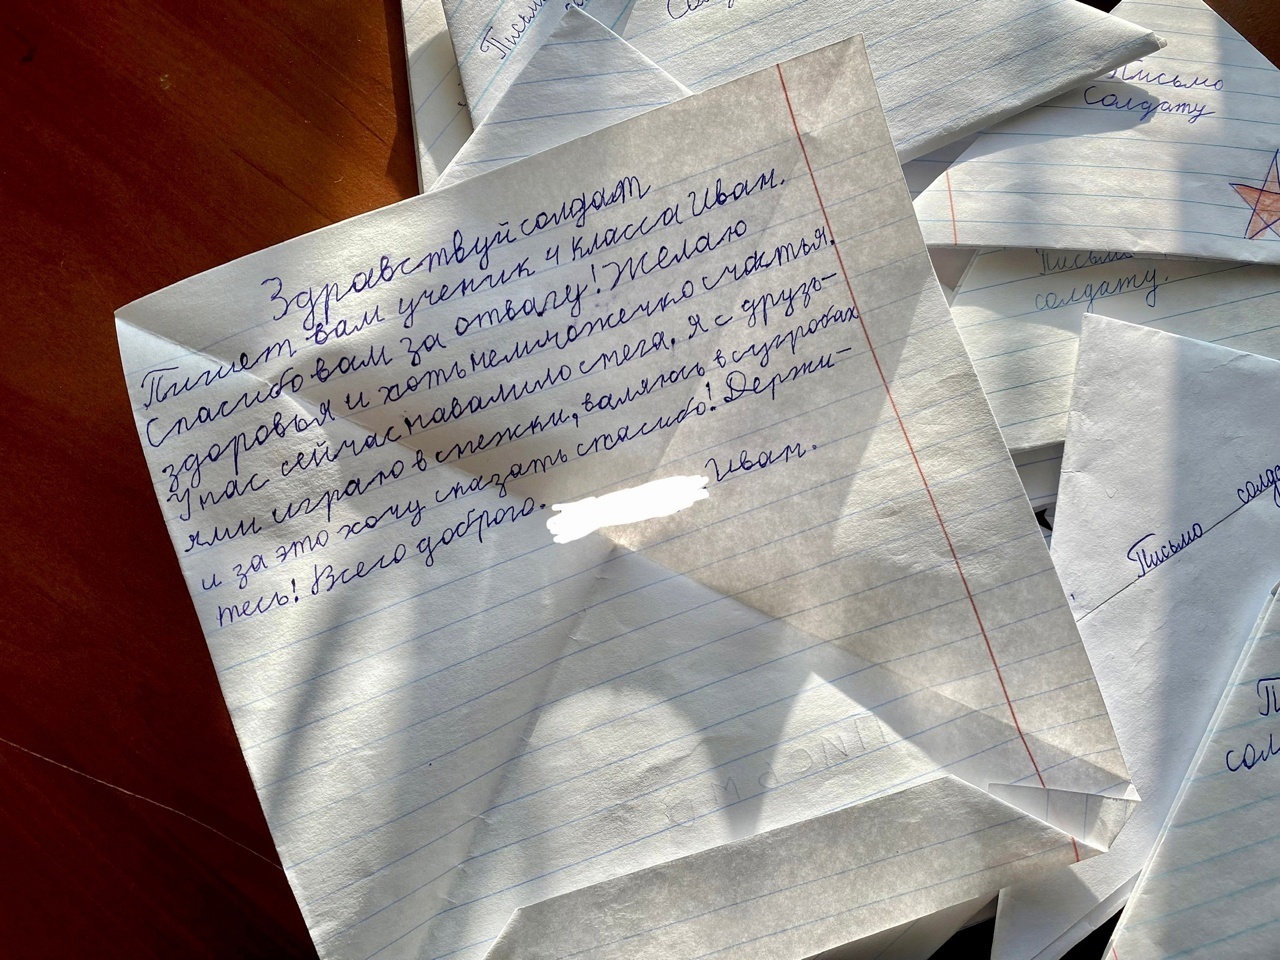 Здравствуй солдат
Пишет вам ученик 4 класса Иван.
Спасибо вам за отвагу! Желаю
здоровья и хоть немножечко счастья.
У нас сейчас навалило снега, я с друзь-
ями играю в снежки, валяюсь в сугробах
и за это хочу сказать спасибо! Держи-
тесь! Всего доброго. Иван.
Письмо
Письмо
солдату
Письмо
солдату.
Письмо солда
П
сол